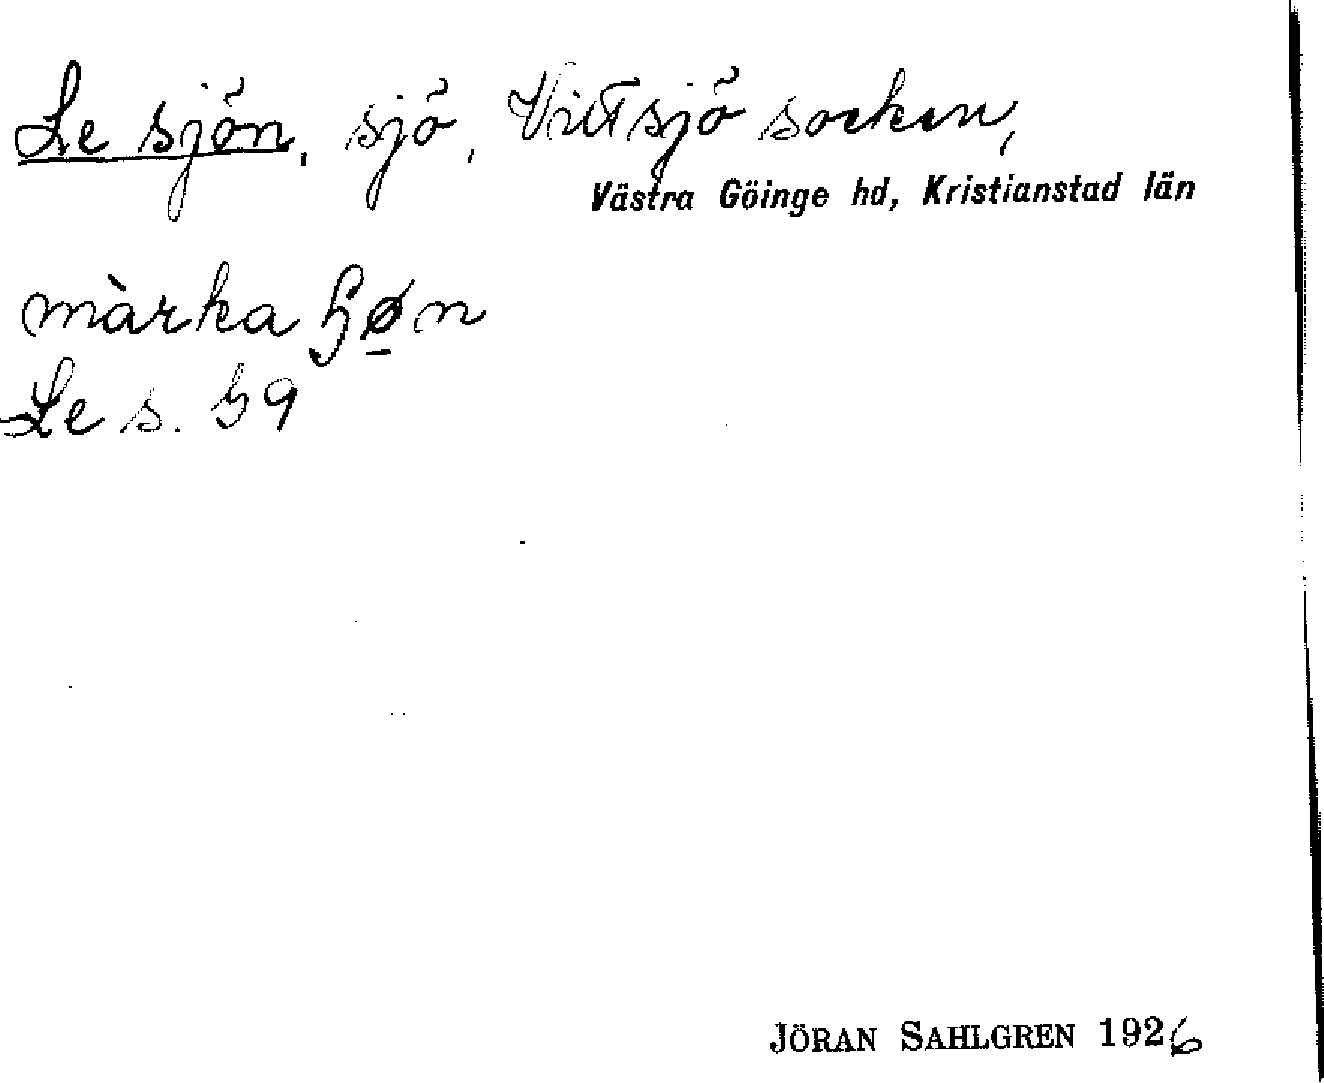 Le sjön, sjö, Vittsjö socken,
Västra Göinge hd, Kristianstad län
màrka ɧø̲n
Le s. 59
JÖRAN SAHLGREN 1926